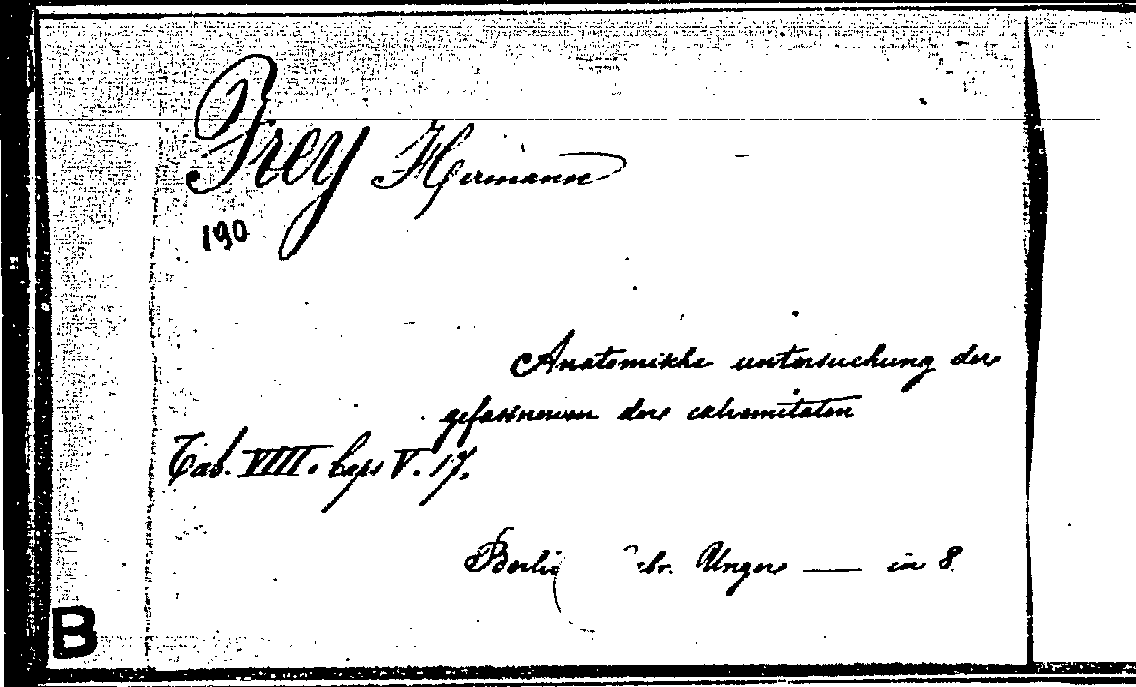 Frey Hermann
190
Anatomische untersuchung der
gefassnerven der extremitaten
Tab. VIII. Caps V. 17.
Berlin Gebr. Unger — in 8.
B